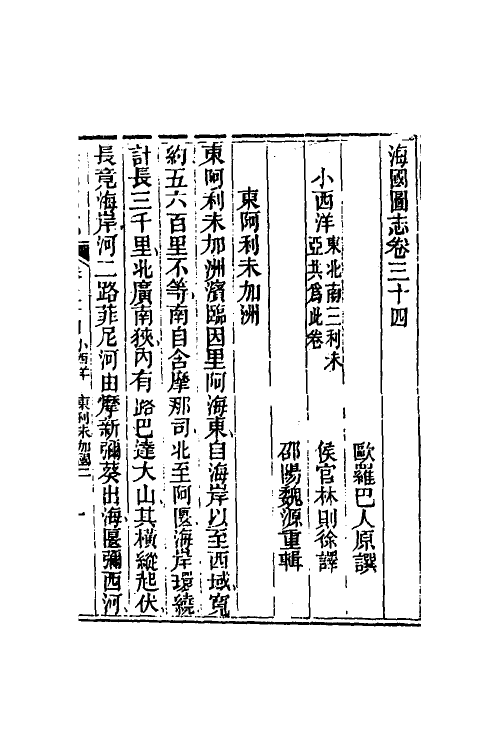 海國圖志卷三十四
歐羅巴人原譔
侯官林則徐譯
邵陽魏源重輯
小西洋東北南三利未亞共為此卷
東阿利未加洲
東阿利未加洲濱臨因里阿海東自海岸以至西域寬
約五六百里不等南自含摩那司北至阿匽海岸環繞
計長三千里北廣南狹內有路巴達大山其橫縱起伏
長竟海岸河二路菲尼河由摩新彌葵出海匽彌西河
小西洋 東利未加國二 一